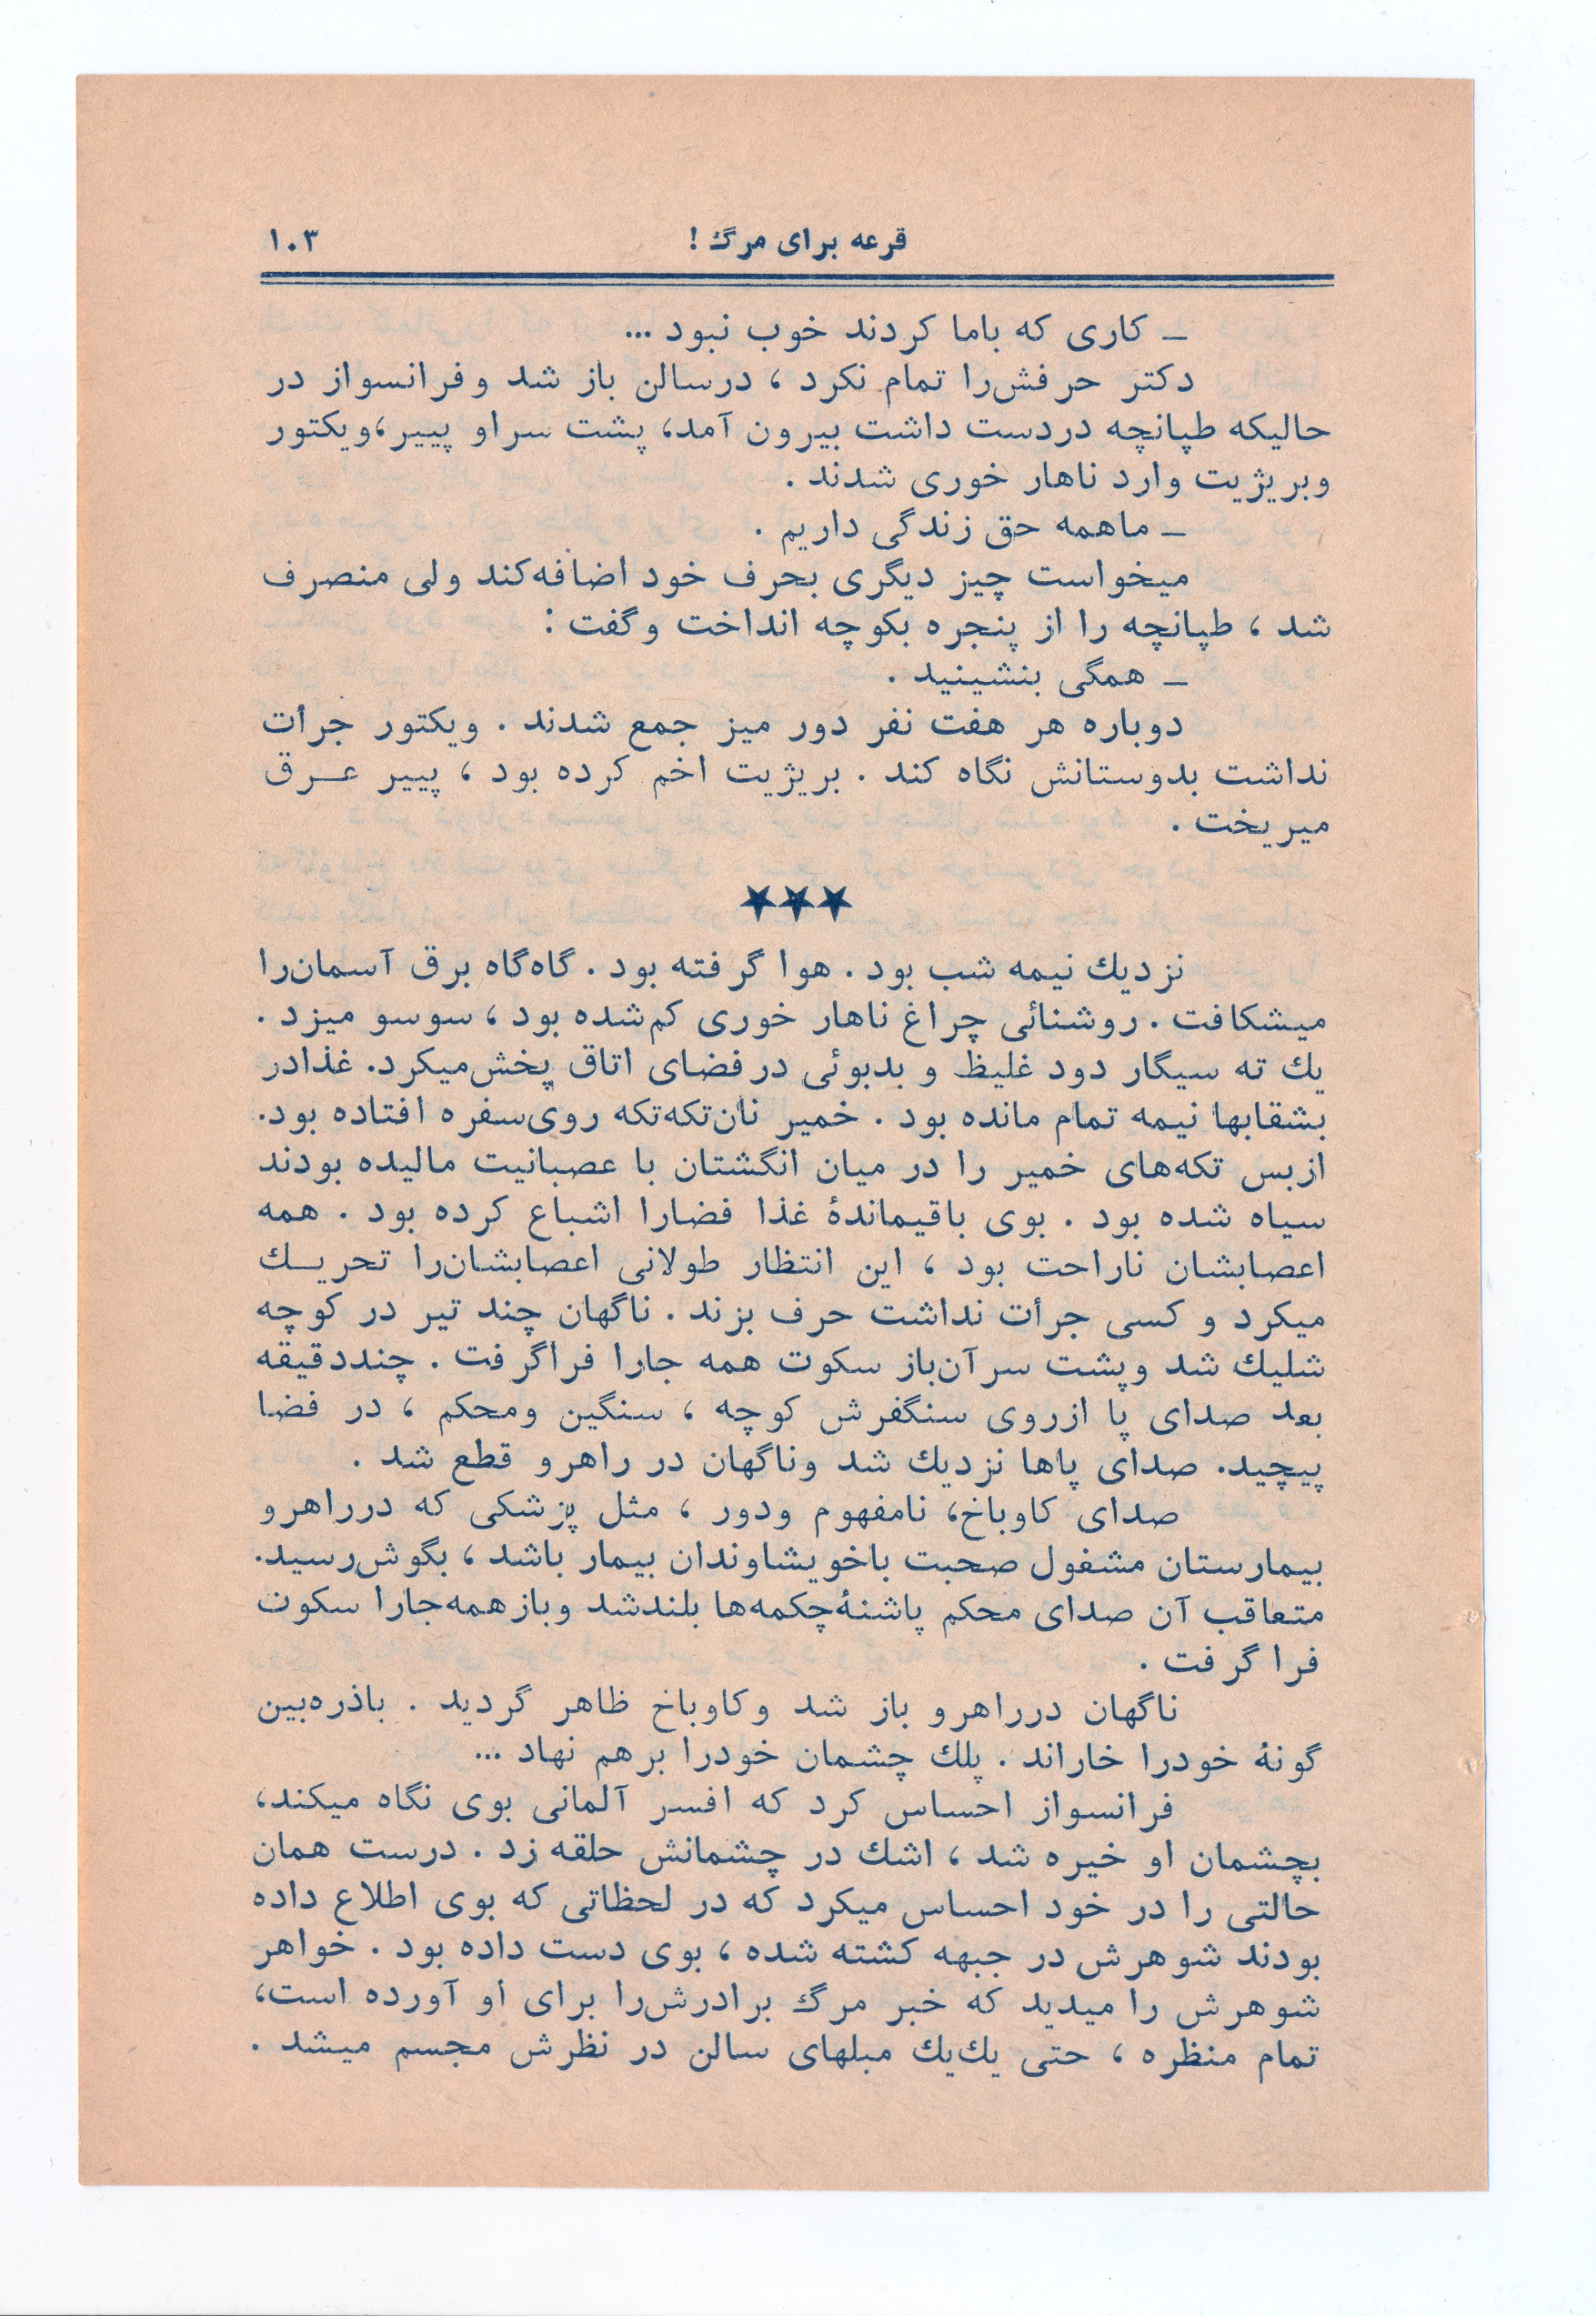 قرعه برای مرگ !
۱۰۳
ــ کاری که باما کردند خوب نبود ...
دکتر حرفش‌را تمام نکرد ، درسالن باز شد وفرانسواز در
حالیکه طپانچه دردست داشت بیرون آمد، پشت سراو پییر،ویکتور
وبریژیت وارد ناهار خوری شدند .
ــ ماهمه حق زندگی داریم .
میخواست چیز دیگری بحرف خود اضافه‌کند ولی منصرف
شد ، طپانچه را از پنجره بکوچه انداخت وگفت :
ــ همگی بنشینید .
دوباره هر هفت نفر دور میز جمع شدند . ویکتور جرأت
نداشت بدوستانش نگاه کند . بریژیت اخم کرده بود ، پییر عــرق
میریخت .
★★★
نزدیك نیمه شب بود . هوا گرفته بود . گاه‌گاه برق آسمان‌را
میشکافت . روشنائی چراغ ناهار خوری کم‌شده بود ، سوسو میزد .
یك ته سیگار دود غلیظ و بدبوئی درفضای اتاق پخش‌میکرد. غذادر
بشقابها نیمه تمام مانده بود . خمیر نان‌تکه‌تکه روی‌سفره افتاده بود.
ازبس تکه‌های خمیر را در میان انگشتان با عصبانیت مالیده بودند
سیاه شده بود . بوی باقیماندهٔ غذا فضارا اشباع کرده بود . همه
اعصابشان ناراحت بود ، این انتظار طولانی اعصابشان‌را تحریــك
میکرد و کسی جرأت نداشت حرف بزند . ناگهان چند تیر در کوچه
شلیك شد وپشت سرآن‌باز سکوت همه جارا فراگرفت . چنددقیقه
بعد صدای پا ازروی سنگفرش کوچه ، سنگین ومحکم ، در فضا
پیچید. صدای پاها نزدیك شد وناگهان در راهرو قطع شد .
صدای کاوباخ، نامفهوم ودور ، مثل پزشکی که درراهرو
بیمارستان مشغول صحبت باخویشاوندان بیمار باشد ، بگوش‌رسید.
متعاقب آن صدای محکم پاشنهٔ‌چکمه‌ها بلندشد وبازهمه‌جارا سکوت
فرا گرفت .
ناگهان درراهرو باز شد وکاوباخ ظاهر گردید . باذره‌بین
گونهٔ خودرا خاراند . پلك چشمان خودرا برهم نهاد ...
فرانسواز احساس کرد که افسر آلمانی بوی نگاه میکند،
بچشمان او خیره شد ، اشك در چشمانش حلقه زد . درست همان
حالتی را در خود احساس میکرد که در لحظاتی که بوی اطلاع داده
بودند شوهرش در جبهه کشته شده ، بوی دست داده بود . خواهر
شوهرش را میدید که خبر مرگ برادرش‌را برای او آورده است،
تمام منظره ، حتی یك‌یك مبلهای سالن در نظرش مجسم میشد .